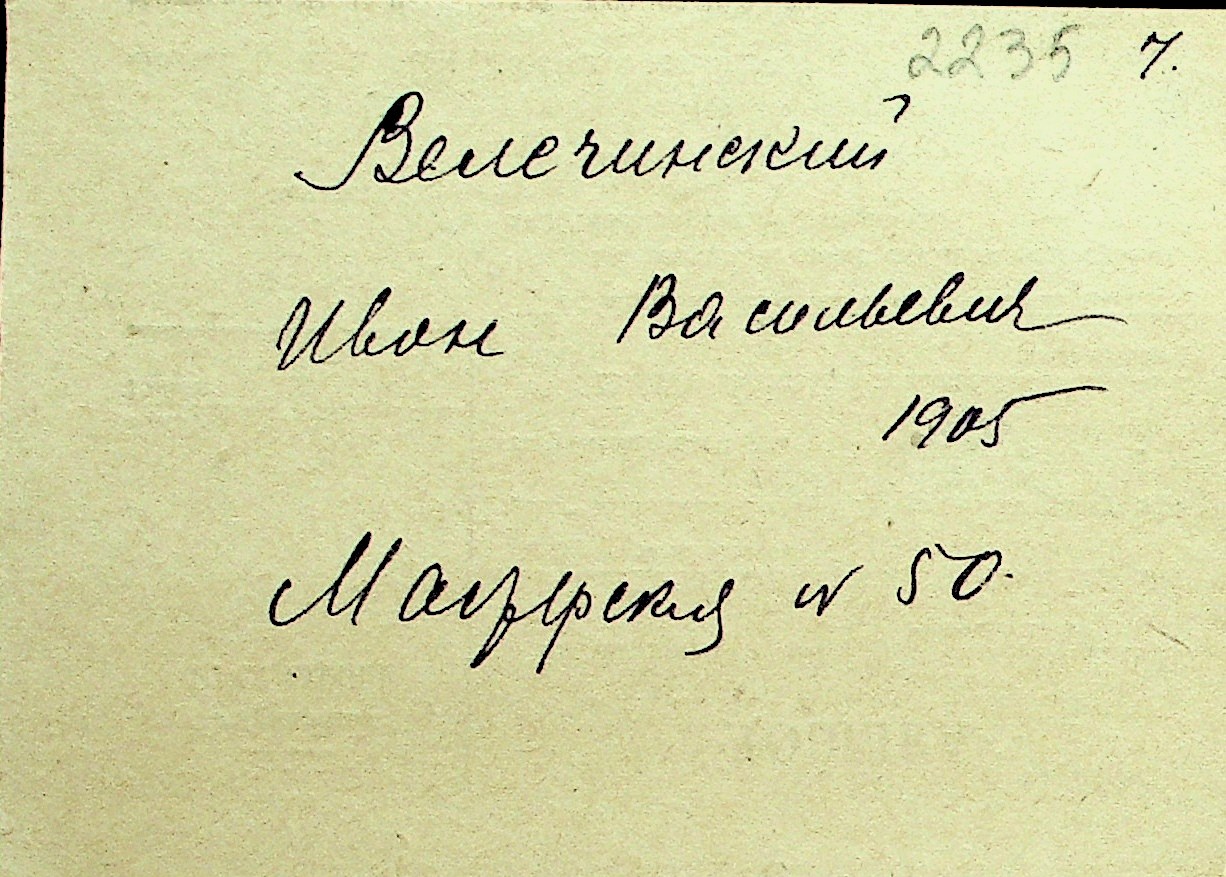 2235 7.
Велечинский
Иван Васильевич
1905
№ 50.